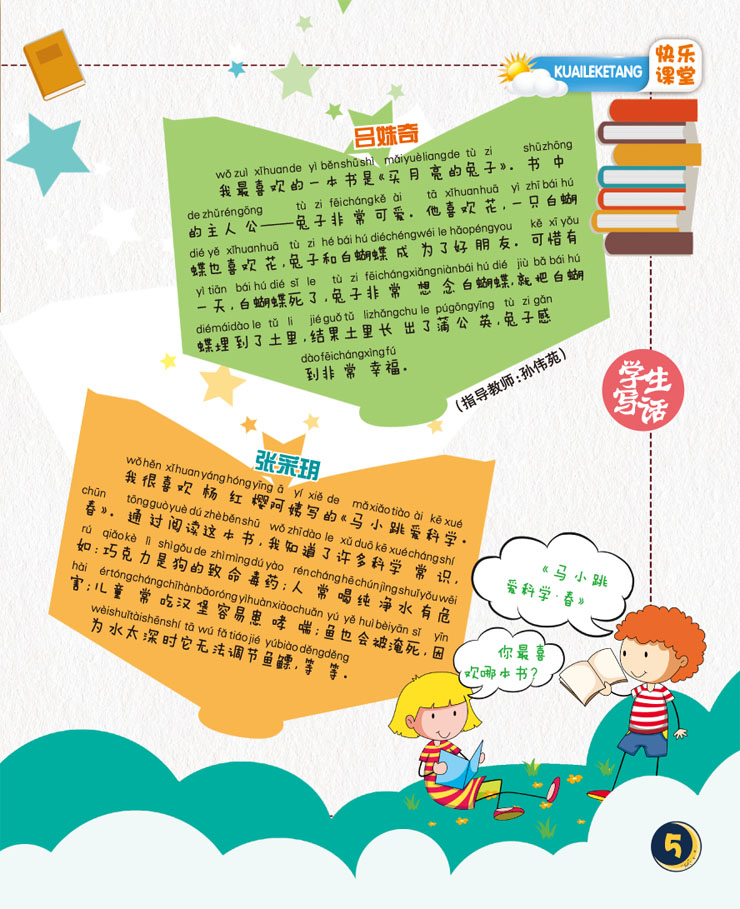 KUAILEKETANG
快乐
课堂
吕姝奇
wǒ zuì xǐhuande yì běnshūshì mǎiyuèliangde tù zi shūzhōng
我最喜欢的一本书是《买月亮的兔子》。书中
de zhǔréngōng tù zi fēichángkě ài tā xǐhuanhuā yì zhī bái hú
的主人公——兔子非常可爱。他喜欢花,一只白蝴
dié yě xǐhuanhuā tù zi hé bái hú diéchéngwéi le hǎopéngyou kě xī yǒu
蝶也喜欢花,兔子和白蝴蝶成为了好朋友。可惜有
yì tiān bái hú dié sǐ le tù zi fēichángxiǎngniànbái hú dié jiù bǎ bái hú
一天,白蝴蝶死了,兔子非常想念白蝴蝶,就把白蝴
diémáidào le tǔ li jiéguǒ tǔ lizhǎngchu le púgōngyīng tù zi gǎn
蝶埋到了土里,结果土里长出了蒲公英,兔子感
dàofēichángxìngfú
到非常幸福。
(指导教师:孙伟苑)
学生
写话
张采玥
wǒhěn xǐhuanyánghóngyīng ā yí xiě de mǎxiǎotiào ài kē xué
我很喜欢杨红樱阿姨写的《马小跳爱科学·
chūn tōngguòyuè dú zhèběnshū wǒ zhīdào le xǔ duō kē xuéchángshí
春》。通过阅读这本书,我知道了许多科学常识,
rú qiǎokè lì shìgǒude zhìmìngdú yào rénchánghēchúnjìngshuǐyǒuwēi
如:巧克力是狗的致命毒药;人常喝纯净水有危
hài értóngchángchīhànbǎoróngyìhuànxiàochuǎn yú yě huìbèiyān sǐ yīn
害;儿童常吃汉堡容易患哮喘;鱼也会被淹死,因
wèishuǐtàishēnshí tā wú fǎ tiáojié yúbiào děngděng
为水太深时它无法调节鱼鳔,等等。
《马小跳
爱科学·春》
你最喜
欢哪本书?
5